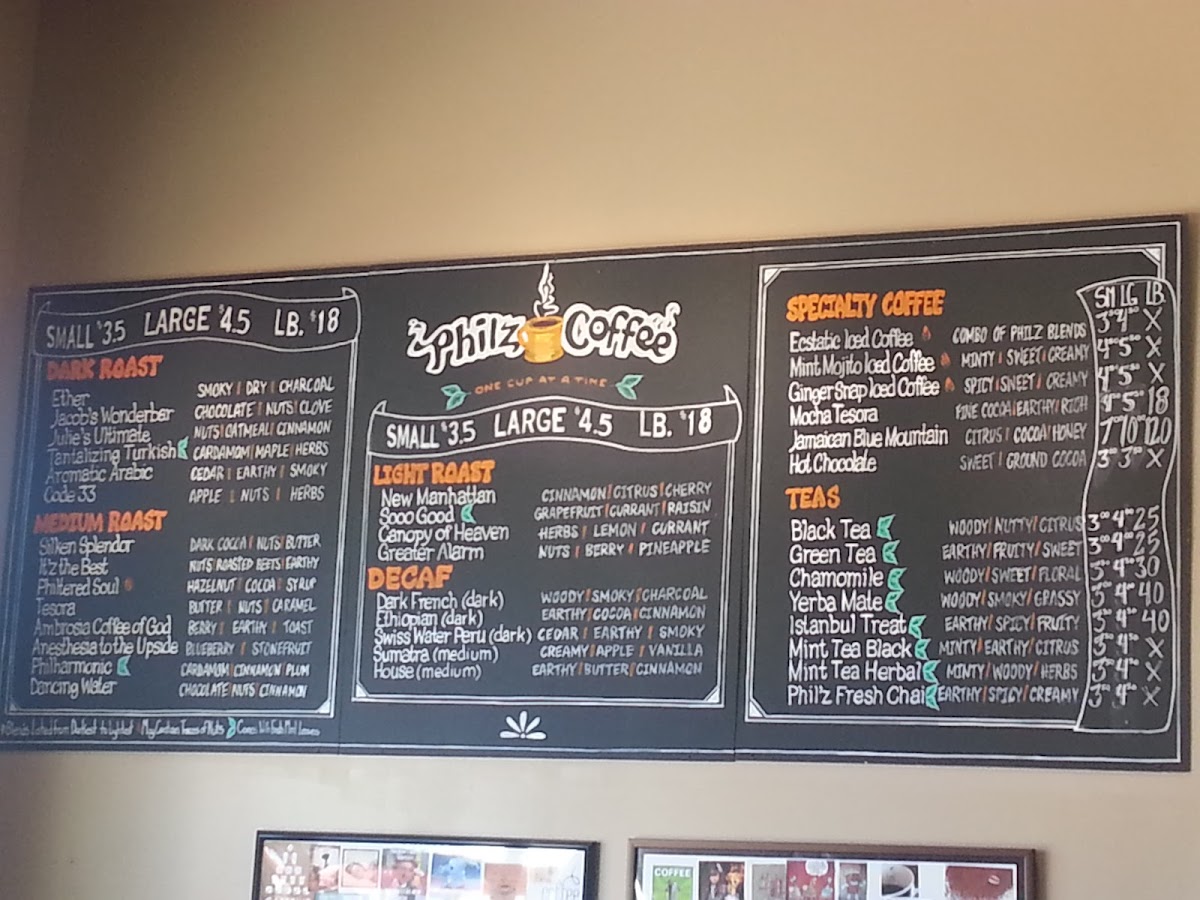 SMALL $3.5 LARGE $4.5 LB. $18
DARK ROAST
Ether SMOKY | DRY | CHARCOAL
Jacob's Wonderbar CHOCOLATE | NUTS | CLOVE
Julie's Ultimate NUTS | OATMEAL | CINNAMON
Tantalizing Turkish CARDAMOM | MAPLE | HERBS
Aromatic Arabic CEDAR | EARTHY | SMOKY
Code 33 APPLE | NUTS | HERBS
MEDIUM ROAST
Silken Splendor DARK COCOA | NUTS | BUTTER
It'z the Best NUTS | ROASTED BEETS | EARTHY
Philtered Soul HAZELNUT | COCOA | SYRUP
Tesora BUTTER | NUTS | CARAMEL
Ambrosia Coffee of God BERRY | EARTHY | TOAST
Anesthesia to the Upside BLUEBERRY | STONEFRUIT
Philharmonic CARDAMOM | CINNAMON | PLUM
Dancing Water CHOCOLATE | NUTS | CINNAMON
Blends Listed from Darkest to Lightest May Contain Traces of Nuts Comes With Fresh Mint Leaves
Philz Coffee
ONE CUP AT A TIME
SMALL $3.5 LARGE $4.5 LB. $18
LIGHT ROAST
New Manhattan CINNAMON | CITRUS | CHERRY
Sooo Good GRAPEFRUIT | CURRANT | RAISIN
Canopy of Heaven HERBS | LEMON | CURRANT
Greater Alarm NUTS | BERRY | PINEAPPLE
DECAF
Dark French (dark) WOODY | SMOKY | CHARCOAL
Ethiopian (dark) EARTHY | COCOA | CINNAMON
Swiss Water Peru (dark) CEDAR | EARTHY | SMOKY
Sumatra (medium) CREAMY | APPLE | VANILLA
House (medium) EARTHY | BUTTER | CINNAMON
SM LG LB.
SPECIALTY COFFEE
Ecstatic Iced Coffee COMBO OF PHILZ BLENDS 3 4 X
Mint Mojito Iced Coffee MINTY | SWEET | CREAMY 4 5 X
GingerSnap Iced Coffee SPICY | SWEET | CREAMY 4 5 X
Mocha Tesora FINE COCOA | EARTHY | RICH 4 5 18
Jamaican Blue Mountain CITRUS | COCOA | HONEY 7 10 120
Hot Chocolate SWEET | GROUND COCOA 3 3 X
TEAS
Black Tea WOODY | NUTTY | CITRUS 3 4 25
Green Tea EARTHY | FRUITY | SWEET 3 4 25
Chamomile WOODY | SWEET | FLORAL 3 4 30
Yerba Mate WOODY | SMOKY | GRASSY 3 4 40
Istanbul Treat EARTHY | SPICY | FRUITY 3 4 40
Mint Tea Black MINTY | EARTHY | CITRUS 3 4 X
Mint Tea Herbal MINTY | WOODY | HERBS 3 4 X
Phil'z Fresh Chai EARTHY | SPICY | CREAMY 3 4 X
COFFEE